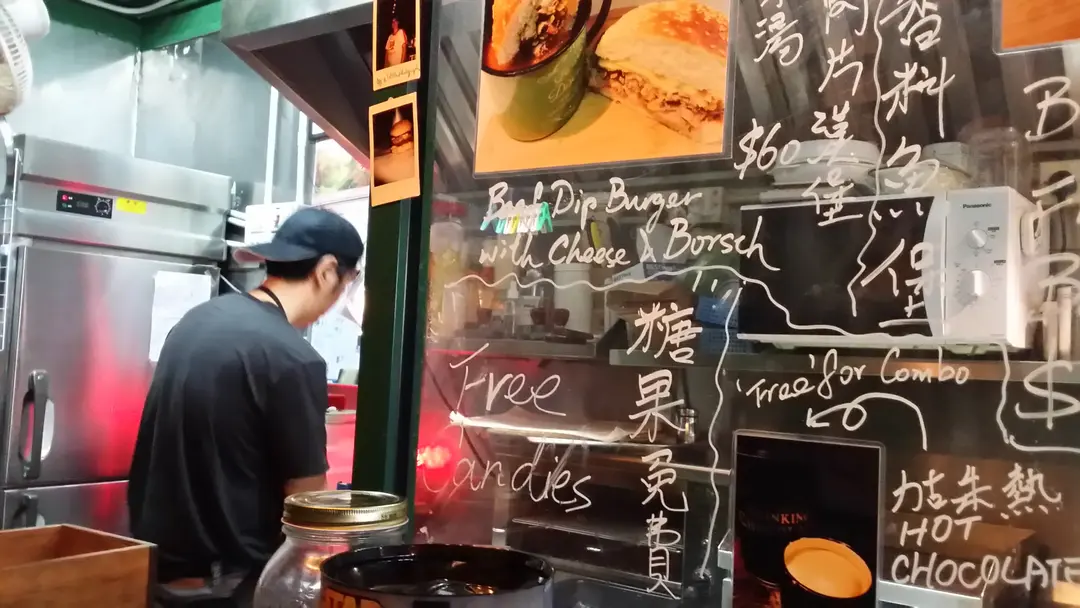 湯
肉片漢堡
香料魚堡
$60
Beef Dip Burger
with Cheese & Borsch
Panasonic
糖果免費
Free
Candies
'Free' for Combo
力古朱熱
HOT
CHOCOLATE
$